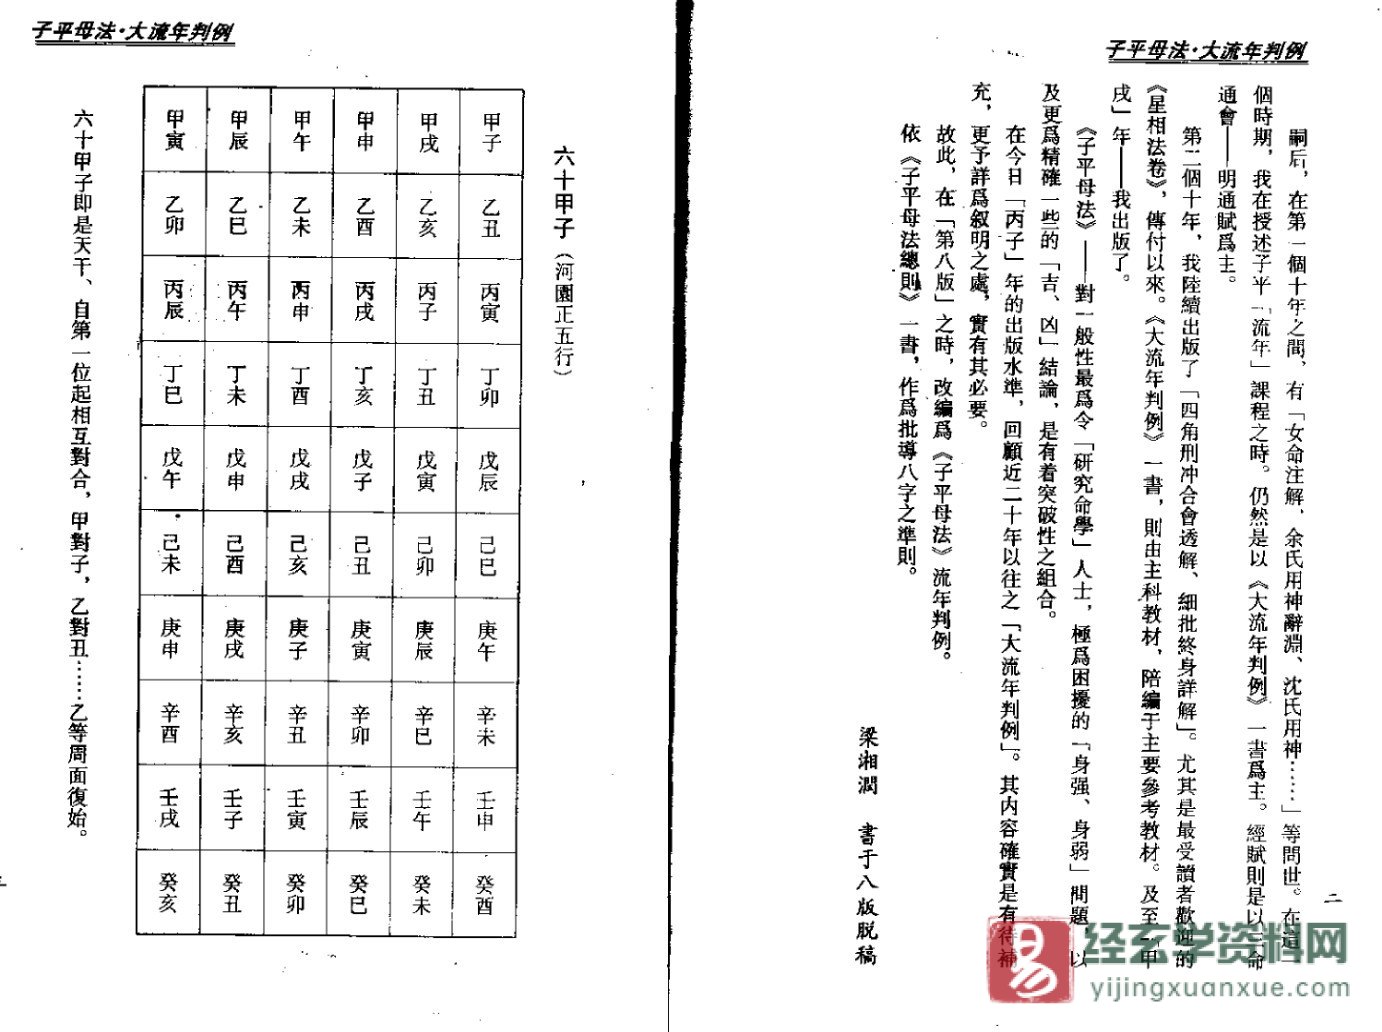 子平母法·大流年判例
嗣后，在第一個十年之間，有「女命注解、余氏用神辭淵、沈氏用神……」等問世。在這一
個時期，我在授述子平「流年」課程之時。仍然是以《大流年判例》一書爲主。經賦則是以三命
通會——明通賦爲主。
第二個十年，我陸續出版了「四角刑冲合會透解、細批終身詳解」。尤其是最受讀者歡迎的
《星相法卷》，傳付以來。《大流年判例》一書，則由主科教材，陪編于主要參考教材。及至「甲
戌」年——我出版了。
《子平母法》——對一般性最爲令「研究命學」人士，極爲困擾的「身强、身弱」問題，以
及更爲精確一些的「吉、凶」結論，是有着突破性之組合。
在今日「丙子」年的出版水準，回顧近二十年以往之「大流年判例」。其内容確實是有待補
充，更予詳爲叙明之處，實有其必要。
故此，在「第八版」之時，改編爲《子平母法》流年判例。
依《子平母法總則》一書，作爲批導八字之準則。
梁湘潤　書于八版脱稿
二
子平母法·大流年判例
六十甲子（河園正五行）
甲子 乙丑 丙寅 丁卯 戊辰 己巳 庚午 辛未 壬申 癸酉
甲戌 乙亥 丙子 丁丑 戊寅 己卯 庚辰 辛巳 壬午 癸未
甲申 乙酉 丙戌 丁亥 戊子 己丑 庚寅 辛卯 壬辰 癸巳
甲午 乙未 丙申 丁酉 戊戌 己亥 庚子 辛丑 壬寅 癸卯
甲辰 乙巳 丙午 丁未 戊申 己酉 庚戌 辛亥 壬子 癸丑
甲寅 乙卯 丙辰 丁巳 戊午 己未 庚申 辛酉 壬戌 癸亥
六十甲子即是天干、自第一位起相互對合，甲對子，乙對丑……乙等周面復始。
易
经玄学资料网
yijingxuanxue.com